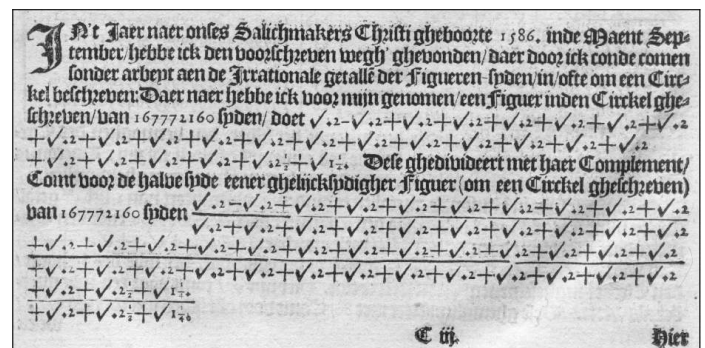 IN't Jaer naer onses Salichmakers Christi gheboorte 1586. inde Maent Sep=
tember/ hebbe ick den voorschreven wegh' ghevonden/ daer door ick conde comen
sonder arbeyt aen de Irrationale getallē der Figueren-syden/in/ofte om een Circ=
kel beschreven: Daer naer hebbe ick voor mijn genomen/een Figuer inden Circkel ghe=
schreven/ van 167772160 syden/ doet √.2-√.2+√.2+√.2+√.2+√.2+√.2+√.2
+√.2+√.2+√.2+√.2+√.2+√.2+√.2+√.2+√.2+√.2+√.2+√.2+√.2
+√.2+√.2+√.2+√.2+√.2½+√1¼. Dese ghedivideert met haer Complement/
Comt voor de halve syde eener ghelijcksydigher Figuer (om een Circkel gheschreven)
van 167772160 syden √.2-√.2+√.2+√.2+√.2+√.2+√.2+√.2+√.2+√.2
√.2+√.2+√.2+√.2+√.2+√.2+√.2+√.2+√.2+√.2
+√.2+√.2+√.2+√.2+√.2+√.2+√.2+√.2+√.2+√.2+√.2+√.2+√.2
+√.2+√.2+√.2+√.2+√.2+√.2+√.2+√.2+√.2+√.2+√.2+√.2+√.2
+√.2+√.2½+√1¼.
+√.2+√.2½+√1¼.
C iij. Hier